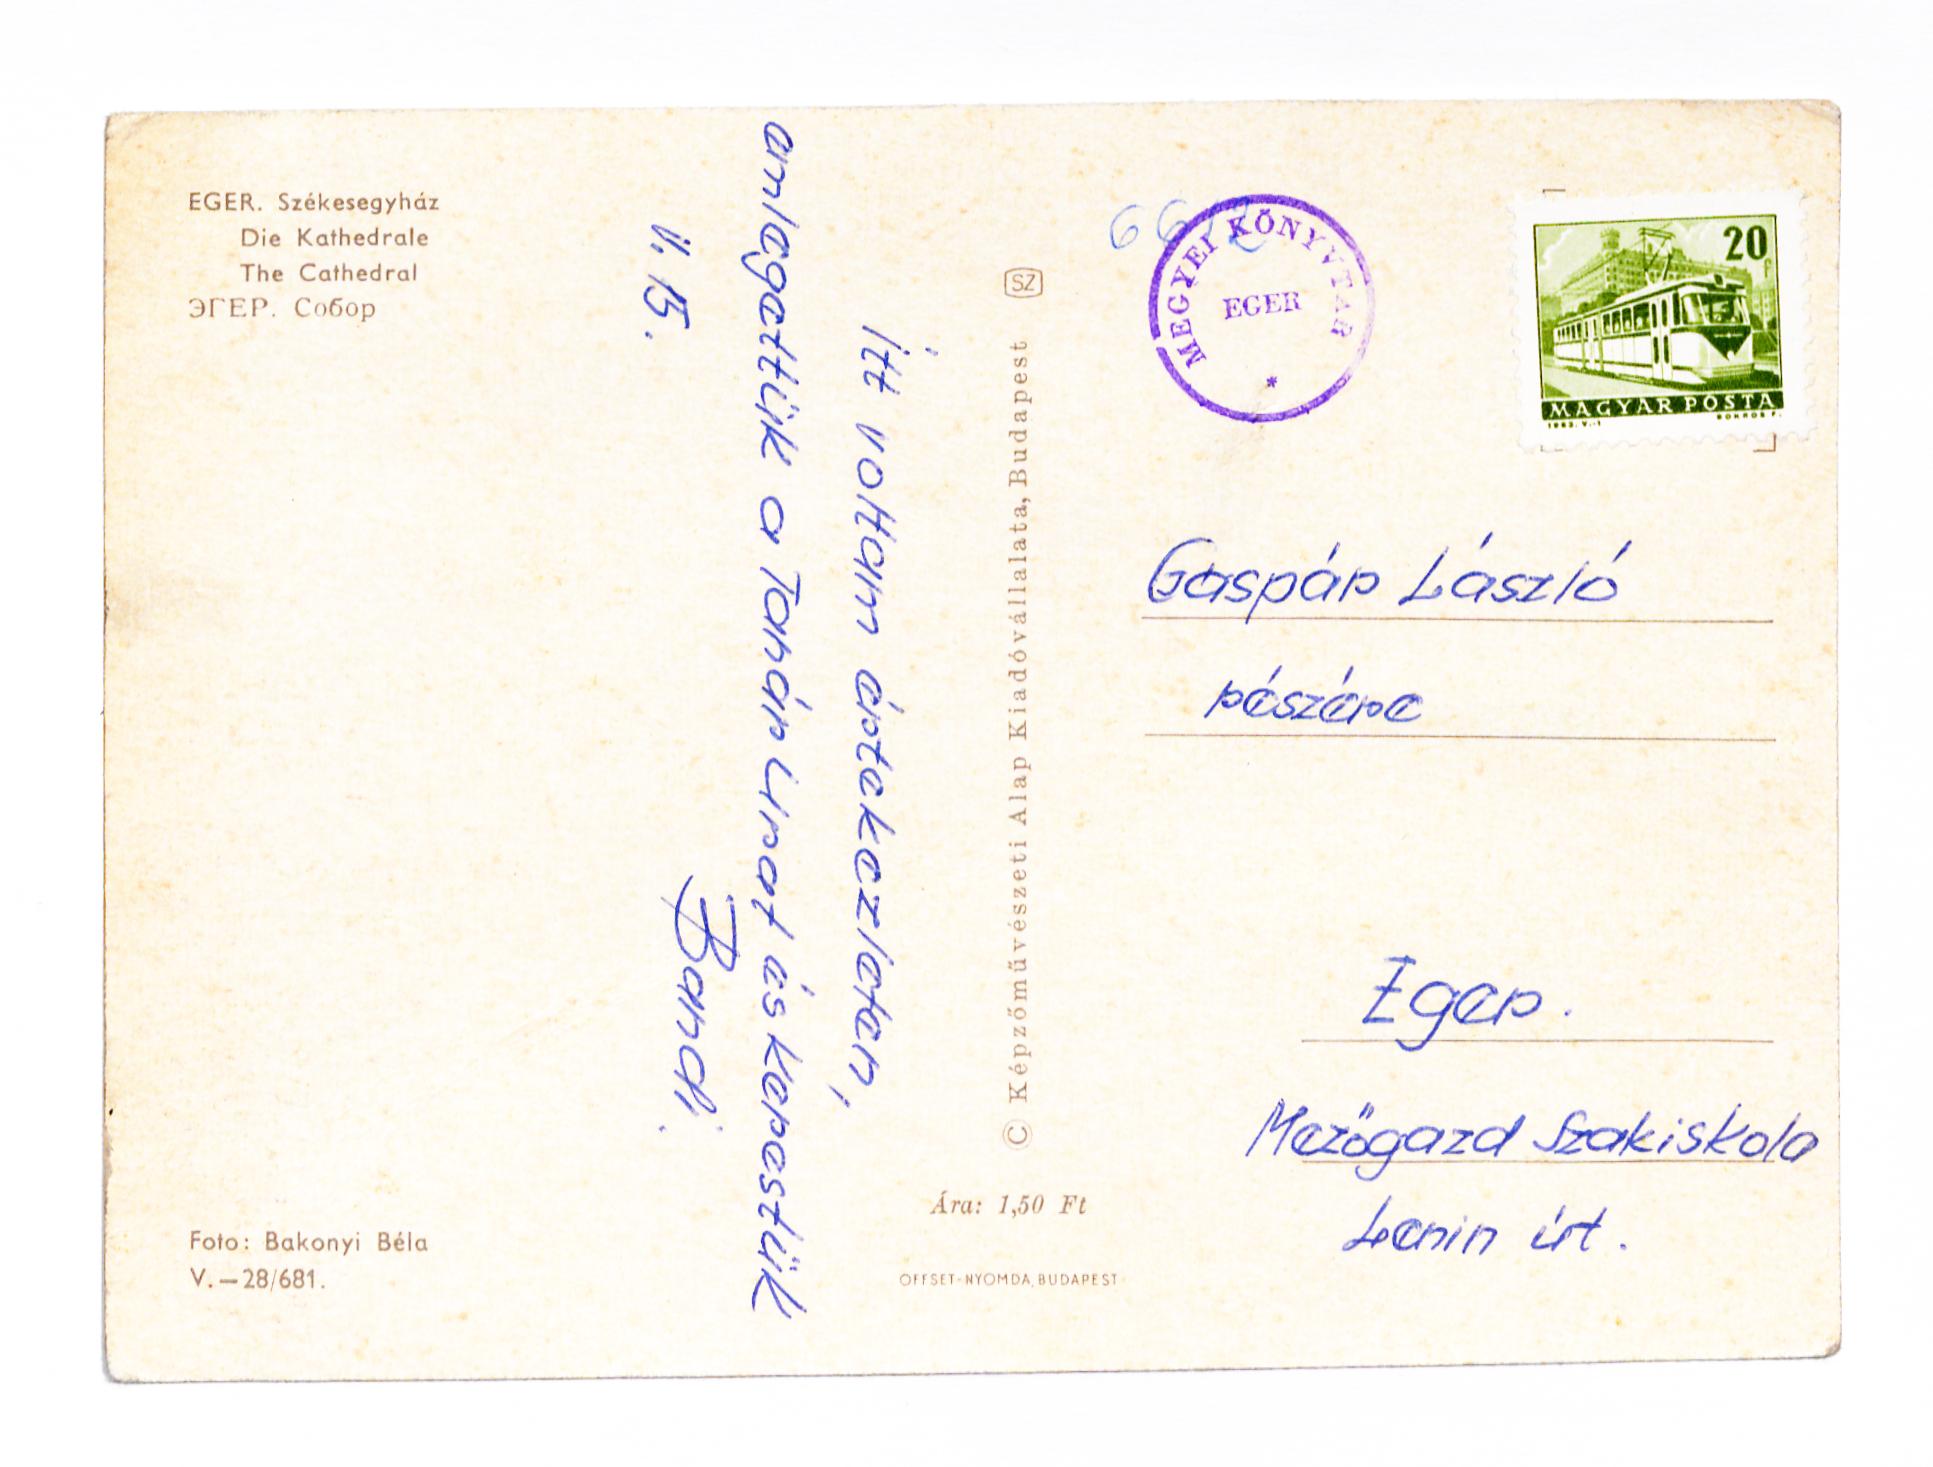 EGER. Székesegyház
Die Kathedrale
The Cathedral
ЭГЕР. Собор
Itt voltam értekezleten,
emlegettük a Tanár urat és kerestük
V. 15.
Bandi.
Foto: Bakonyi Béla
V.—28/681.
SZ
© Képzőművészeti Alap Kiadóvállalata, Budapest
Ára: 1,50 Ft
OFFSET-NYOMDA, BUDAPEST
MEGYEI KÖNYVTÁR
EGER
*
20 f
MAGYAR POSTA
1963. V.-1
BOKROS F.
Gaspár László
részére
Eger.
Mezőgazd Szakiskola
Lenin út.